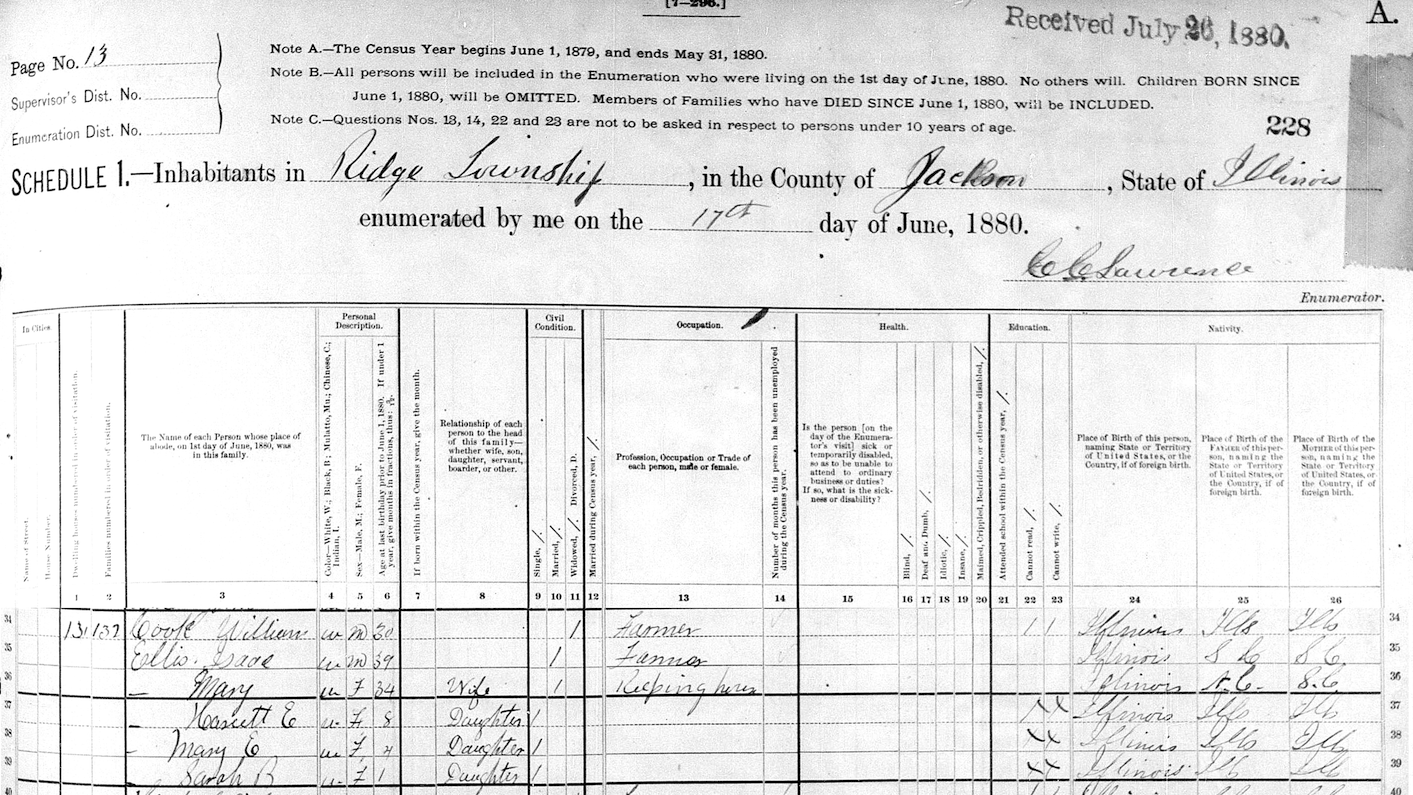 [7—296.]
A.
Received July 26, 1880.
Page No. 13
Supervisor's Dist. No.
Enumeration Dist. No.
Note A.—The Census Year begins June 1, 1879, and ends May 31, 1880.
Note B.—All persons will be included in the Enumeration who were living on the 1st day of June, 1880. No others will. Children BORN SINCE
June 1, 1880, will be OMITTED. Members of Families who have DIED SINCE June 1, 1880, will be INCLUDED.
Note C.—Questions Nos. 13, 14, 22 and 23 are not to be asked in respect to persons under 10 years of age.
228
SCHEDULE 1.—Inhabitants in Ridge Township, in the County of Jackson, State of Illinois
enumerated by me on the 17th day of June, 1880.
C C Lawrence
Enumerator.
In Cities.
Name of Street.
House Number.
Dwelling houses numbered in order of visitation.
Families numbered in order of visitation.
The Name of each Person whose place of
abode, on 1st day of June, 1880, was
in this family.
Personal
Description.
Color—White, W.; Black, B.; Mulatto, Mu.; Chinese, C.;
Indian, I.
Sex—Male, M.; Female, F.
Age at last birthday prior to June 1, 1880. If under 1
year, give months in fractions, thus:
If born within the Census year, give the month.
Relationship of each
person to the head
of this family—
whether wife, son,
daughter, servant,
boarder, or other.
Civil
Condition.
Single, /.
Married, /.
Widowed, /. Divorced, D.
Married during Census year, /.
Occupation.
Profession, Occupation or Trade of
each person, male or female.
Number of months this person has been unemployed
during the Census year.
Health.
Is the person [on
the day of the Enumera-
tor's visit] sick or
temporarily disabled,
so as to be unable to
attend to ordinary
business or duties?
If so, what is the sick-
ness or disability?
Blind, /.
Deaf and Dumb, /.
Idiotic, /.
Insane, /.
Maimed, Crippled, Bedridden, or otherwise disabled, /.
Education.
Attended school within the Census year, /.
Cannot read, /.
Cannot write, /.
Nativity.
Place of Birth of this person,
naming State or Territory
of United States, or the
Country, if of foreign birth.
Place of Birth of the
FATHER of this per-
son, naming the
State or Territory
of United States, or
the Country, if of
foreign birth.
Place of Birth of the
MOTHER of this per-
son, naming the
State or Territory
of United States, or
the Country, if of
foreign birth.
1 2 3 4 5 6 7 8 9 10 11 12 13 14 15 16 17 18 19 20 21 22 23 24 25 26
34 131 137 Cook William W M 30 / Farmer / / Illinois Ills Ills 34
35 Ellis Isaac W M 39 / Farmer Illinois S C S C 35
36 — Mary W F 34 Wife / Keeping house Illinois N. C. S. C 36
37 — Harriett E W F 8 Daughter / Illinois Ills Ills 37
38 — Mary E W F 4 Daughter / Illinois Ills Ills 38
39 — Sarah B W F 1 Daughter / Illinois Ill Ill 39
40 40